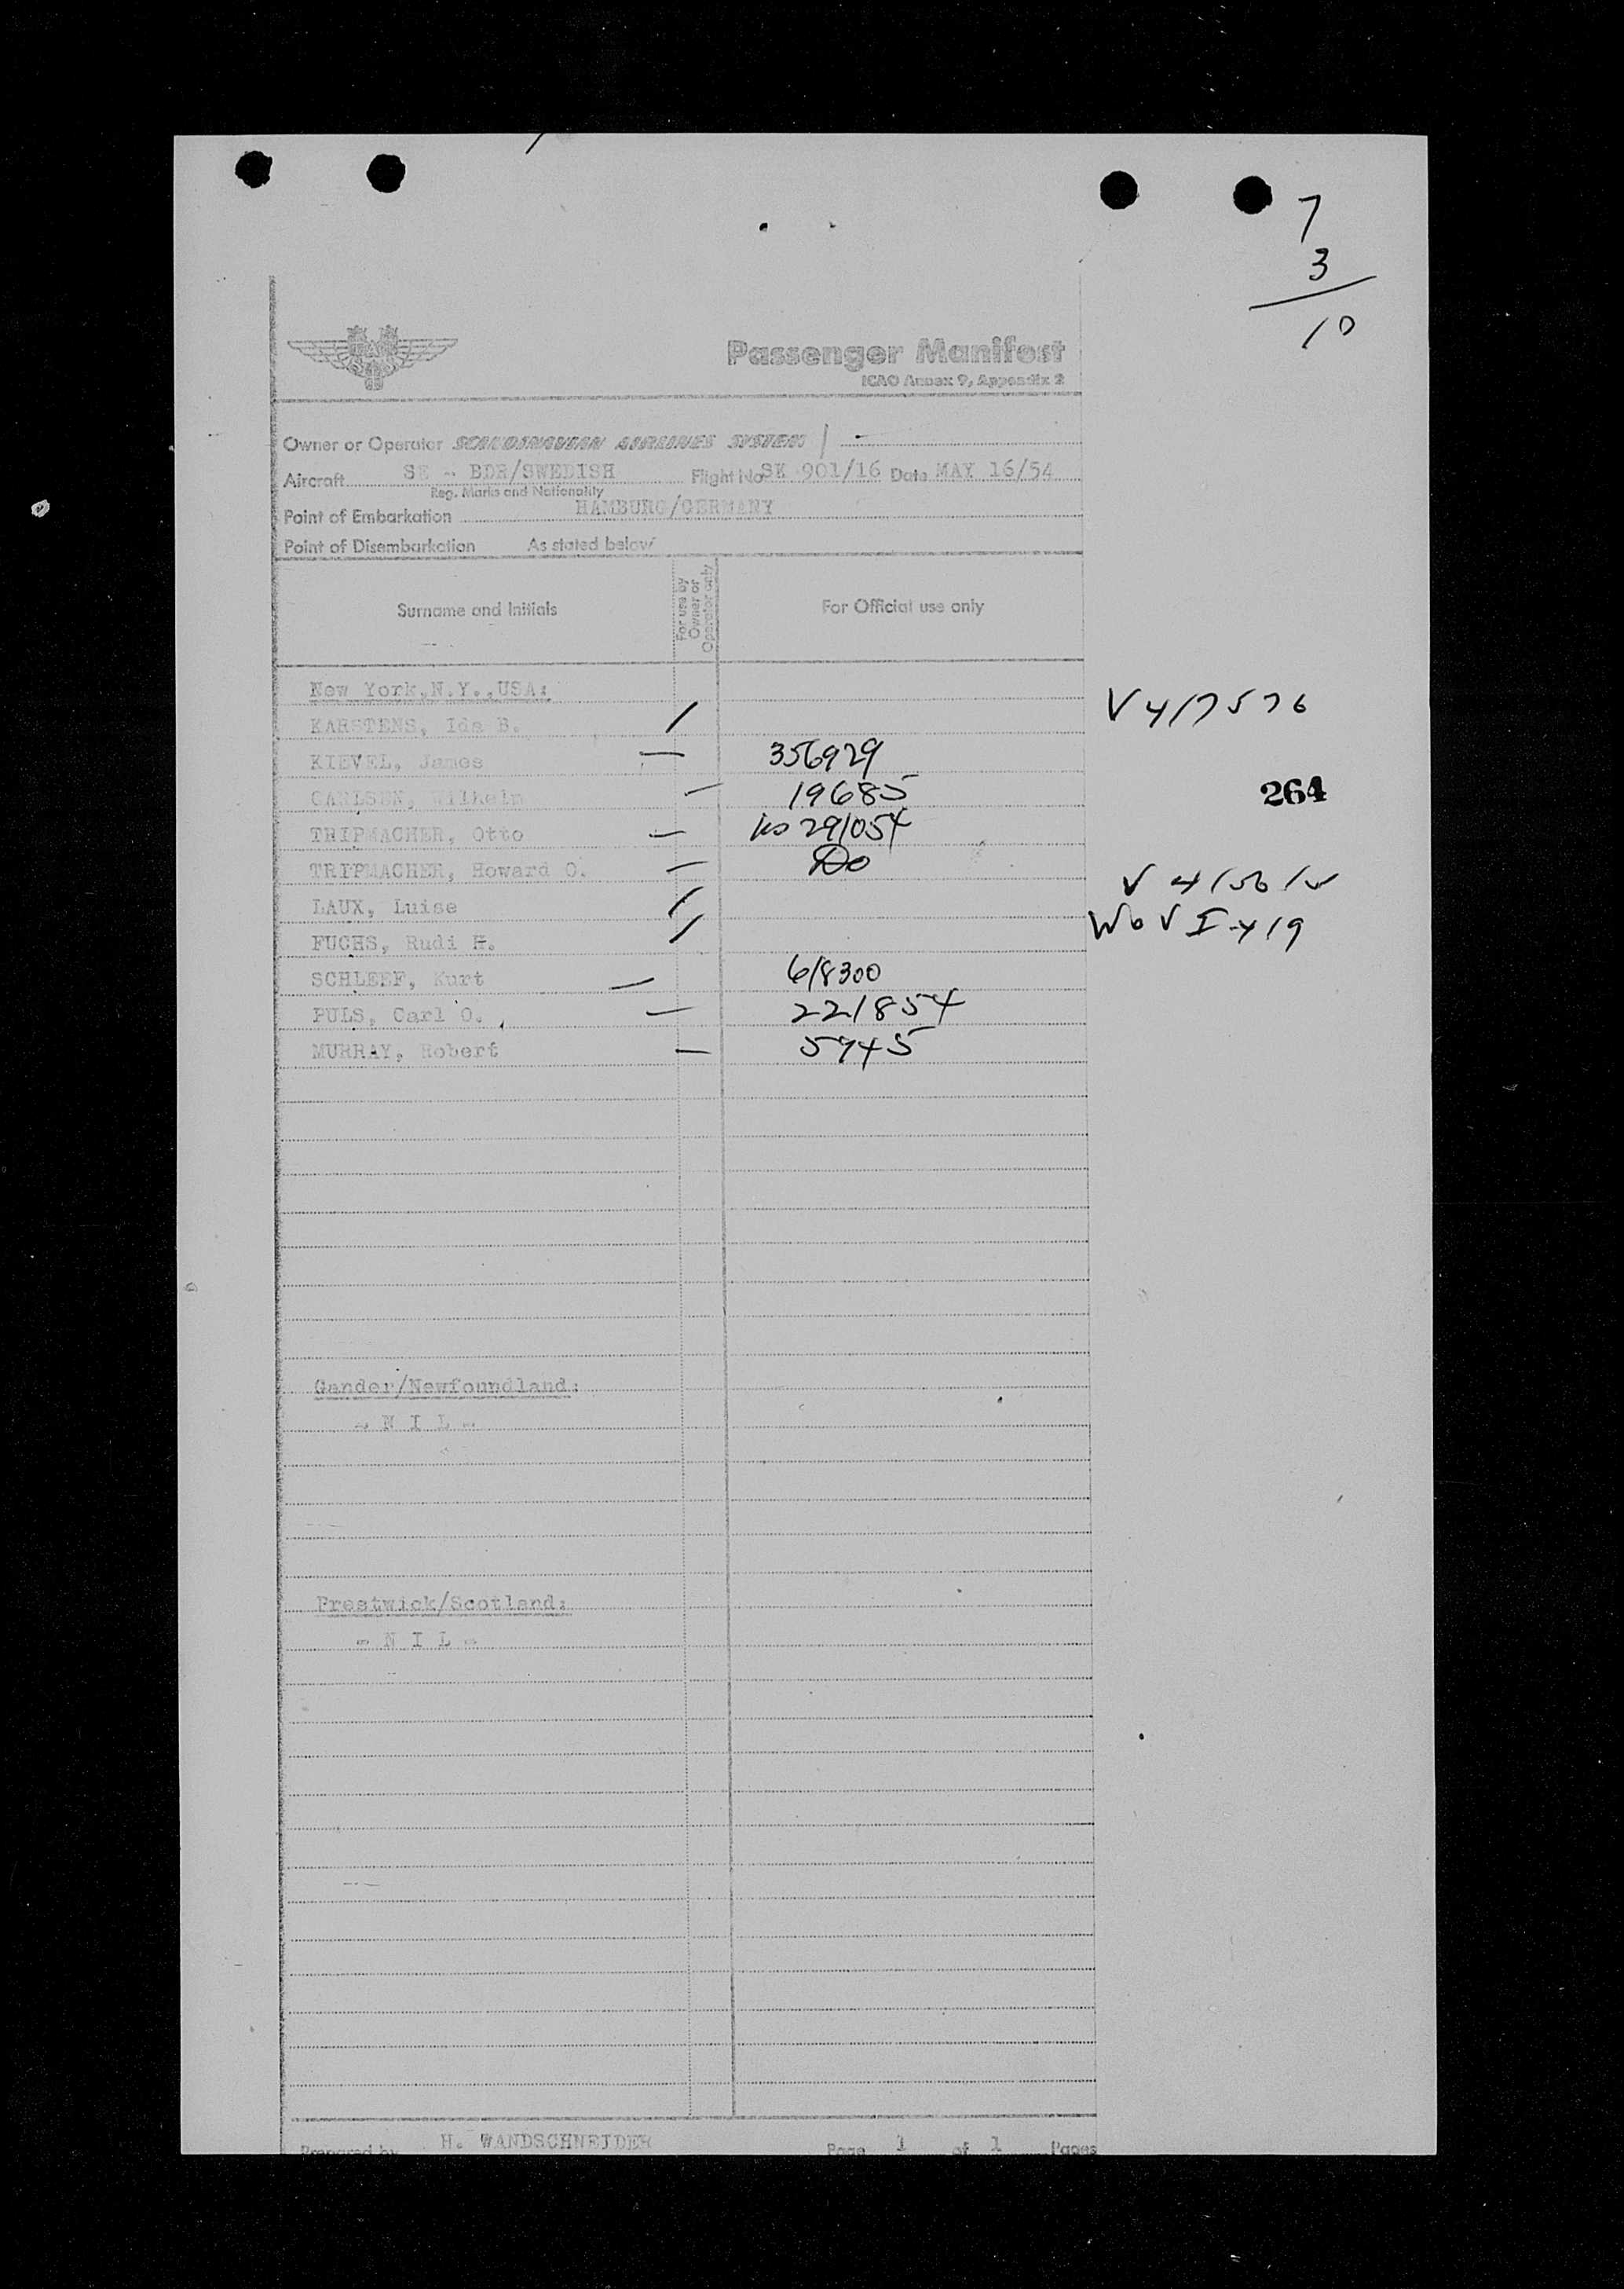 7
3
10
Passenger Manifest
ICAO Annex 9, Appendix 2
Owner or Operator SCANDINAVIAN AIRLINES SYSTEM
Aircraft SE - BDR/SWEDISH Flight No SK 901/16 Date MAY 16/54
Reg. Marks and Nationality
Point of Embarkation HAMBURG/GERMANY
Point of Disembarkation As stated below
Surname and Initials For use by Owner or Operator only For Official use only
New York,N.Y.,USA:
KARSTENS, Ida B. / V 417576
KIEVEL, James — 356929
CARLSEN, Wilhelm — 19685 264
TRIPMACHER, Otto — 291054
TRIPMACHER, Howard O. — Do
LAUX, Luise /
FUCHS, Rudi H. / I-419
SCHLEEF, Kurt — 618300
PULS, Carl O. — 221854
MURRAY, Robert — 5945
Gander/Newfoundland:
- N I L -
Prestwick/Scotland:
- N I L -
Prepared by H. WANDSCHNEIDER Page 1 of 1 Pages